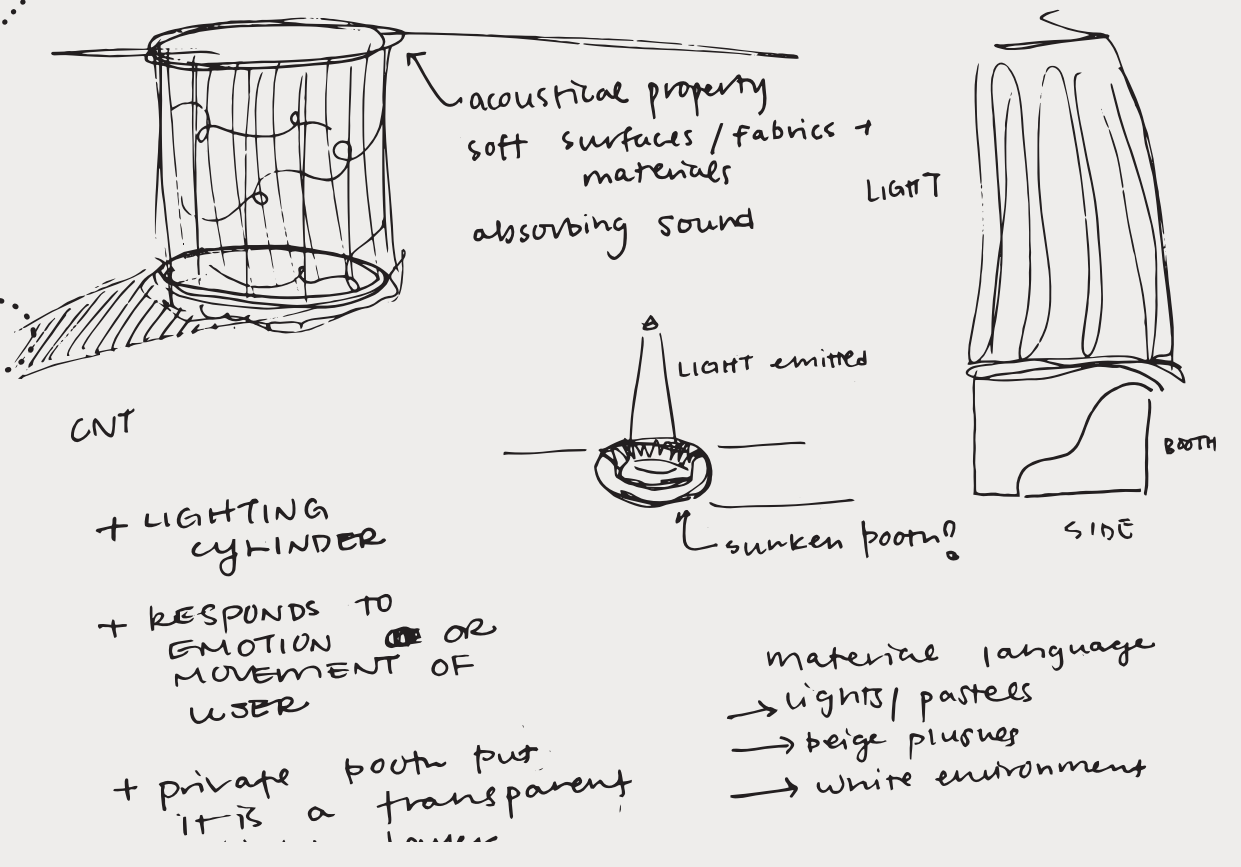 acoustical property
soft surfaces / fabrics +
materials
absorbing sound
LIGHT
LIGHT emitted
BOOTH
SIDE
sunken booth?
CNT
+ LIGHTING
CYLINDER
+ RESPONDS TO
EMOTION OR
MOVEMENT OF
USER
+ private booth but
it is a transparent
material language
→ lights / pastels
→ beige plushes
→ white environment